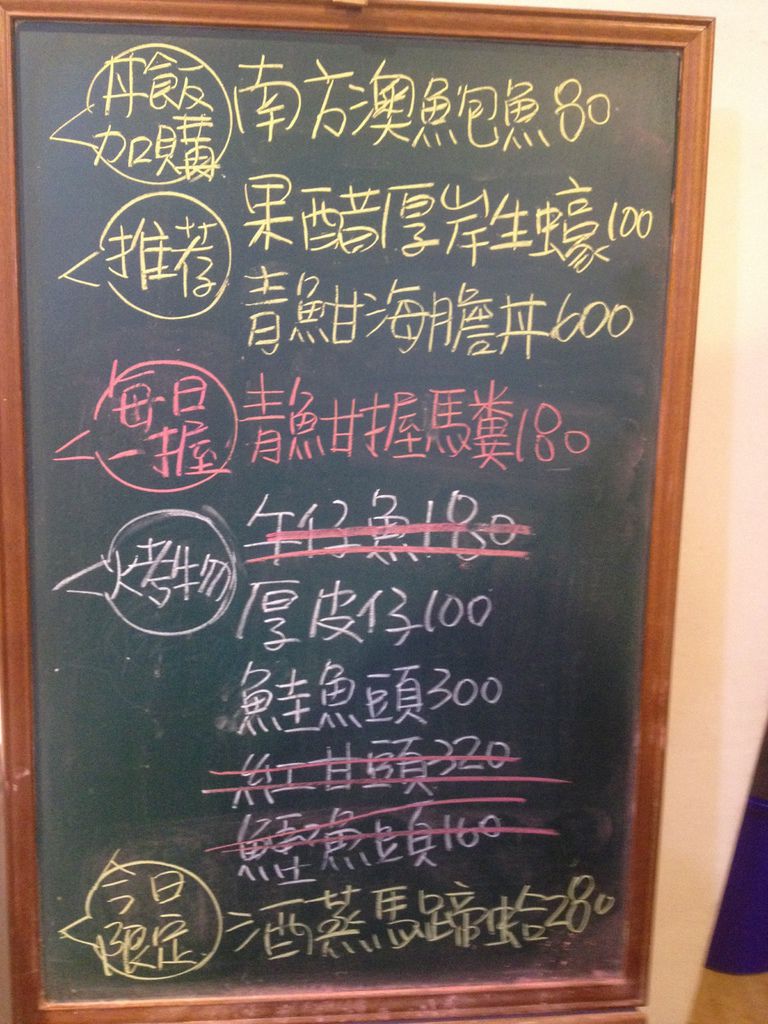 丼飯
加購
南方澳鮑魚80
推荐
果醋厚岸生蠔100
青魽海膽丼600
每日
一握
青魽握馬糞180
烤物
午仔魚180
厚皮仔100
鮭魚頭300
紅甘頭320
鱸魚頭160
今日
限定
酒蒸馬蹄蛤280